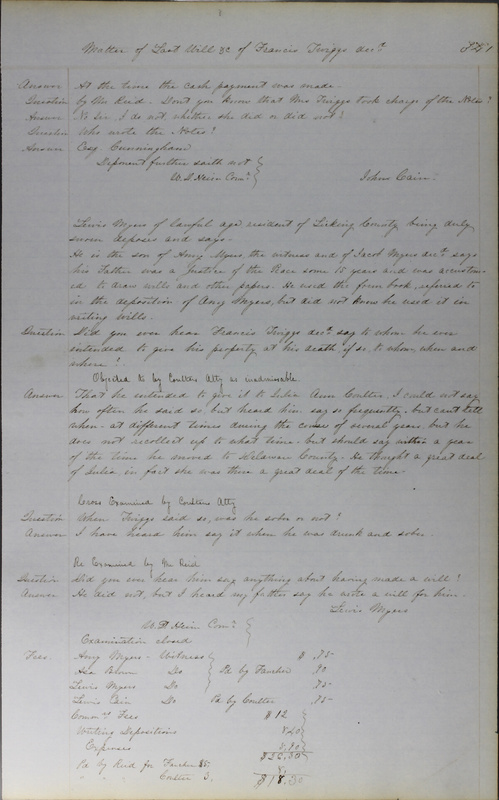 Matter of Last Will &c of Francis Twiggs decd
Answer At the time the cash payment was made.
Question by Mr Reid. Don't you know that Mrs Twiggs took charge of the Notes?
Answer No Sir, I do not, whether she did or did not?
Question Who wrote the Notes?
Answer Esq. Cunningham
Deponent further saith not
W. D. Heim Comr
Johns Cain
Lewis Myers of lawful age resident of Licking County being duly
sworn deposes and says.
He is the son of Amy Myers, the witness and of Jacob Myers decd. says
his Father was a Justice of the Peace some 15 years and was accustom-
ed to draw wills and other papers. He used the form book, referred to
in the deposition of Amy Myers, but did not know he used it in
writing wills.
Question Did you ever hear Francis Twiggs decd. say to whom he ever
intended to give his property at his death, if so, to whom, when and
where?
Objected to by Coulters Atty as inadmissible
Answer That he intended to give it to Julia Ann Coulter, I could not say
how often he said so, but heard him say so frequently, but can't tell
when - at different times during the course of several years, but he
does not recollect up to what time - but should say within a year
of the time he moved to Delaware County. He thought a great deal
of Julia, in fact she was there a great deal of the time.
Cross Examined by Coulters Atty
Question When Twiggs said so, was he sober or not?
Answer I have heard him say it when he was drunk and sober.
Re Examined by Mr Reid
Question Did you ever hear him say anything about having made a will?
Answer He did not, but I heard my father say he wrote a will for him.
Lewis Myers
W. D. Heim Comr
Examination closed
Fees Amy Myers - Witness $ .75
Brown Do Pd by Fancher .90
Lewis Myers Do .75
Lewis Cain Do Pd by Coulter .75
Comrs Fees $12
Writing Depositions
Expenses
Pd by Reid for Fancher
" " " Coulter 3.